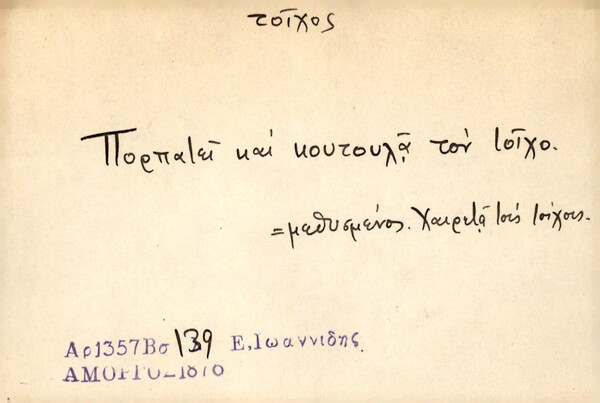 τοῖχος
Πορπατεῖ καὶ κουτουλᾷ τὸν τοῖχο.
=μεθυσμένος. Χαιρετᾷ τοὺς τοίχους.
Αρ1357Βσ 139 Ε,Ιωαννιδης
ΑΜΟΡΓΟΣ1876